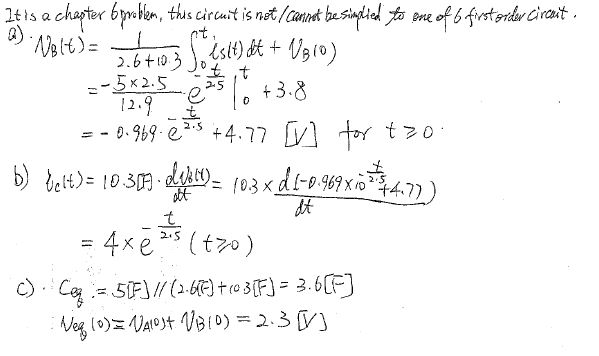 It is a chapter 6 problem, this circuit is not/cannot be simplied to one of 6 first order circuit.
a). V_B(t) = \frac{1}{2.6+10.3} \int_0^t i_s(t) dt + V_B(0)
= -\frac{5×2.5}{12.9} e^{-\frac{t}{2.5}} |_0^t + 3.8
= - 0.969· e^{-\frac{t}{2.5}} + 4.77 [V] for t ≥ 0.
b) i_c(t) = 10.3[F]· \frac{dV_B(t)}{dt} = 10.3 × \frac{d(-0.969×10^{-\frac{t}{2.5}}+4.77)}{dt}
= 4×e^{-\frac{t}{2.5}} (t≥0)
c). C_{eq} = 5[F]//(2.6[F]+10.3[F]) = 3.6[F]
V_{eq}(0) = V_A(0) + V_B(0) = 2.3 [V]